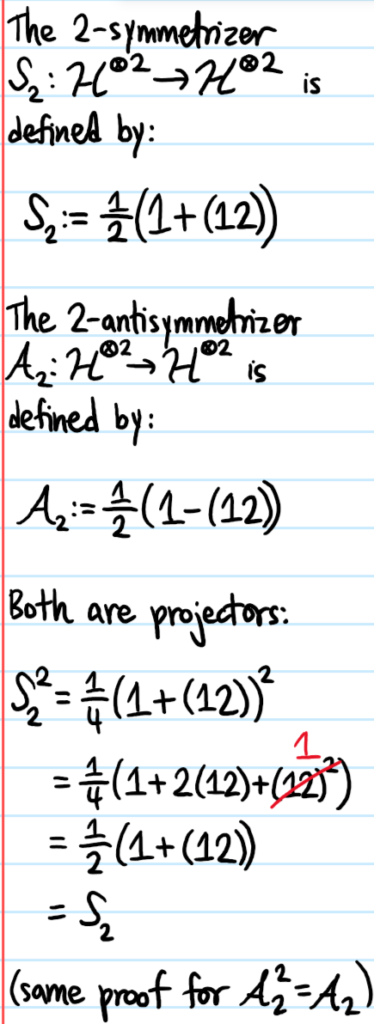 The 2-symmetrizer
S₂: ℋ^⊗2 → ℋ^⊗2 is
defined by:
S₂ := ½(1+(12))
The 2-antisymmetrizer
A₂: ℋ^⊗2 → ℋ^⊗2 is
defined by:
A₂ := ½(1-(12))
Both are projectors:
S₂² = ¼(1+(12))²
1
= ¼(1+2(12)+(12)²)
= ½(1+(12))
= S₂
(same proof for A₂²=A₂)